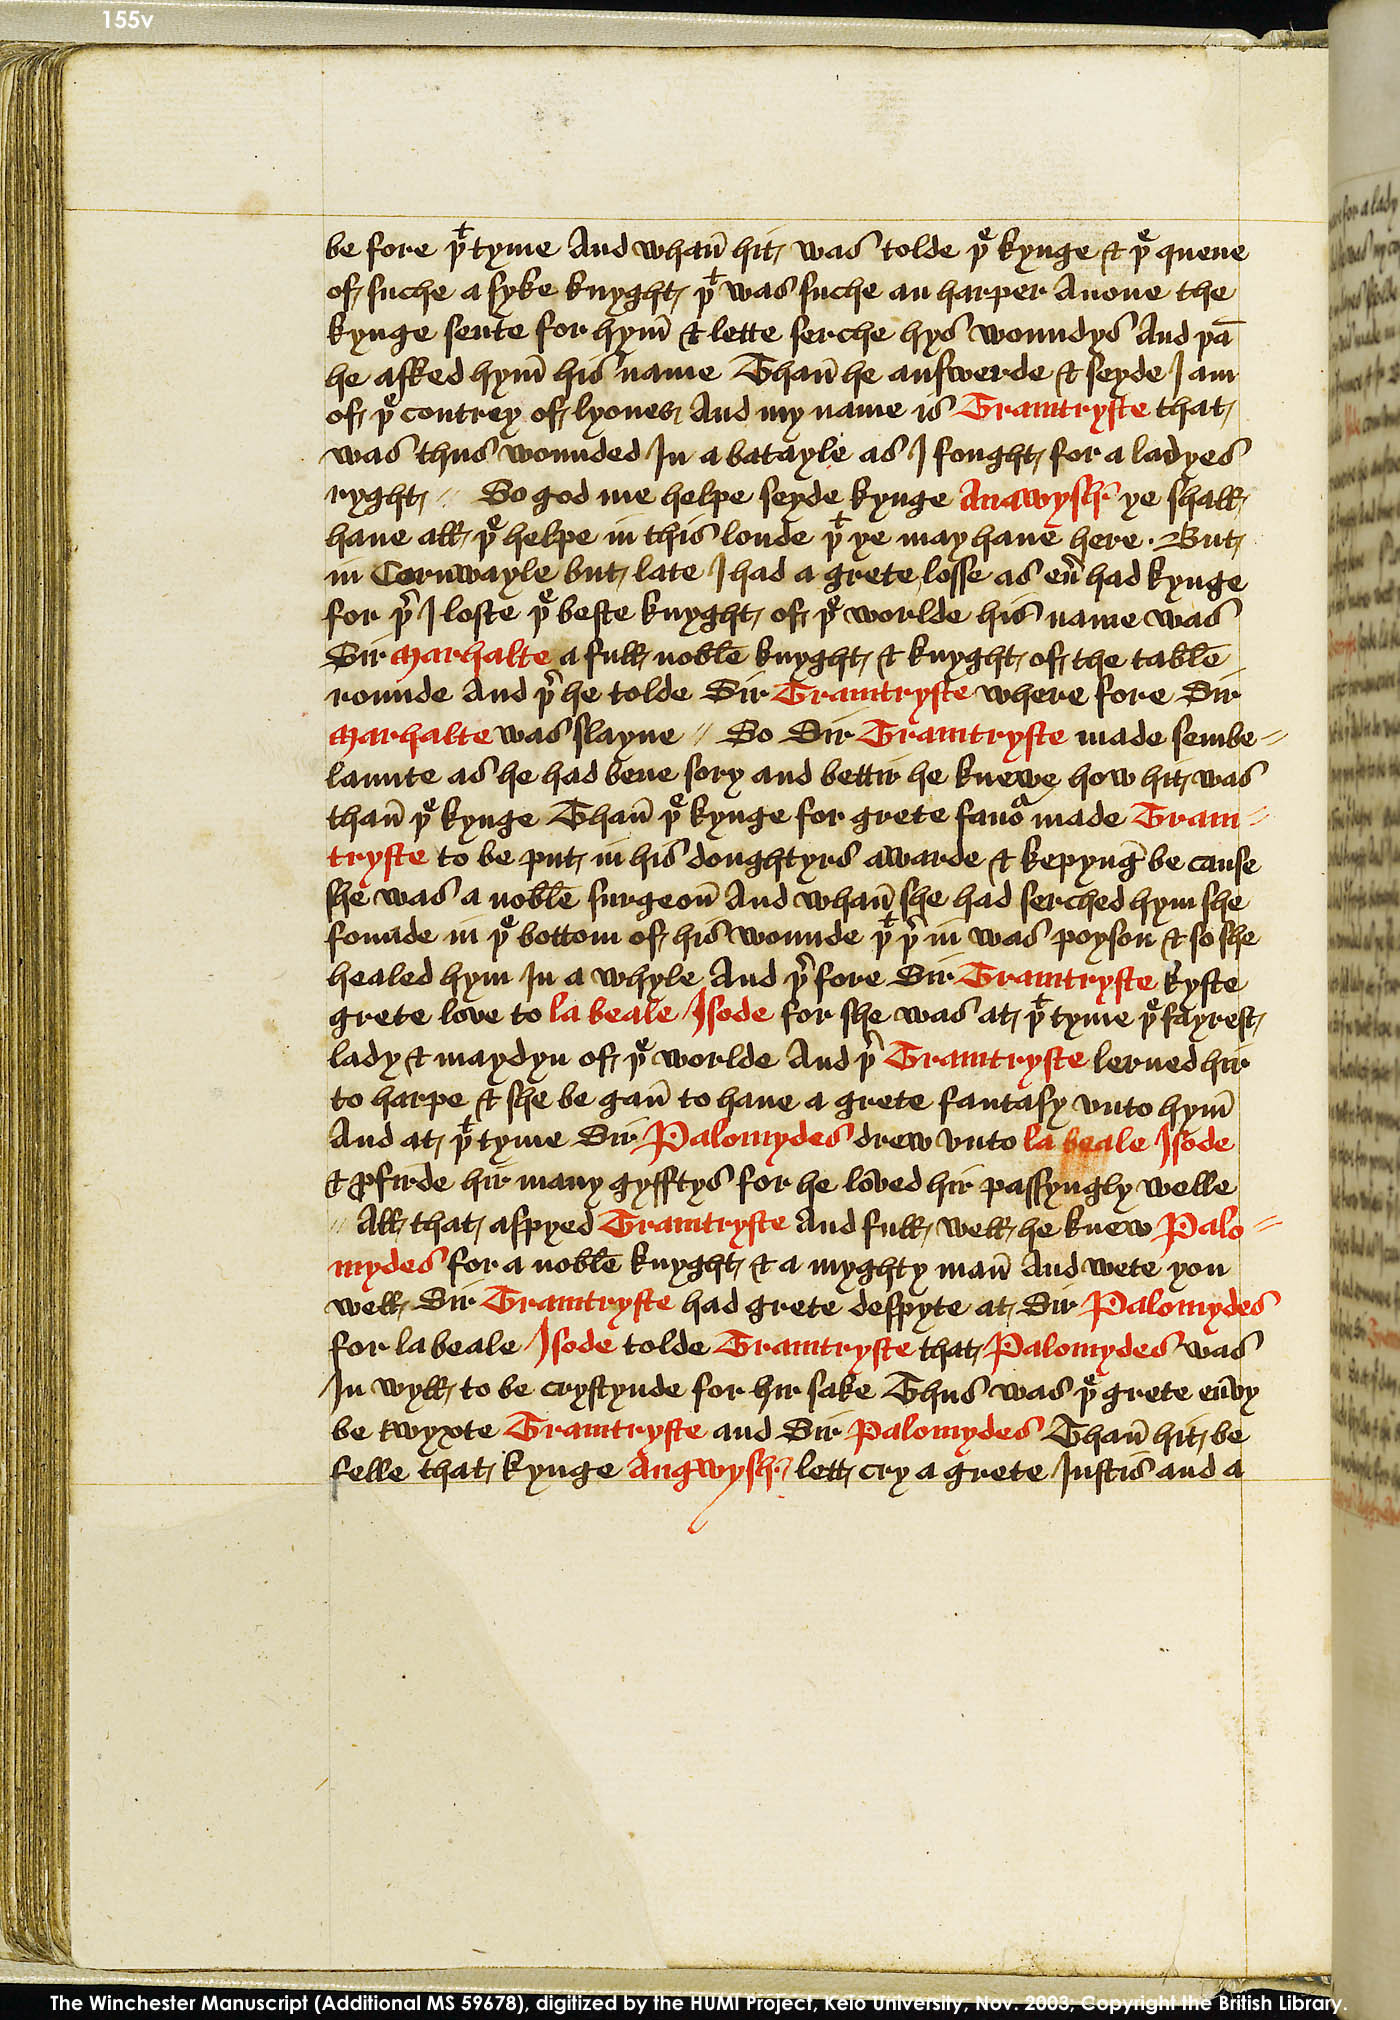 155v
be fore þᵗ tyme And whan̄ hit was tolde þᵉ kynge & þᵉ quene
of suche a syke knyght þᵗ was suche an harper Anone the
kynge sente for hym̄ & lette serche hys woundys And þā
he asked hym̄ his name Than̄ he answerde & seyde I am
of þᵉ contrey of lyones And my name is Tramtryste that
was thus wounded In a batayle as I fought for a ladyes
ryght // So god me helpe seyde kynge Angwysh ye shall
haue all þᵉ helpe in this londe þᵗ ye may haue here . But
in Cornwayle but late I had a grete losse as eū had kynge
for þʳ I loste þᵉ beste knyght of þᵉ worlde his name was
Sir Marhalte a full noble knyght & knyght of the table
rounde And þʳ he tolde Sir Tramtryste where fore Sir
Marhalte was slayne // So Sir Tramtryste made sembe //
launte as he had bene sory and bettir he knewe how hit was
than̄ þᵉ kynge Than̄ þᵉ kynge for grete fauoᵃ made Tram //
tryste to be put in his doughtyrs awarde & kepynḡ be cause
she was a noble surgeon̄ And whan̄ she had serched hym she
founde in þᵉ bottom of his wounde þᵗ þʳ in was poyson & so she
healed hym In a whyle And þʳ fore Sir Tramtryste kyste
grete love to la beale Isode for she was at þᵗ tyme þᵉ fayrest
lady & maydyn of þᵉ worlde And þʳ Tramtryste lerned hir
to harpe & she be gan̄ to haue a grete fantasy vnto hym̄
And at þᵗ tyme Sir Palomydes drew vnto la beale Isode
& ꝓfirde hir many gyfftys for he loved hir passyngly welle
// All that aspyed Tramtryste And full well he knew Palo //
mydes for a noble knyght & a myghty man̄ And wete you
well Sir Tramtryste had grete despyte at Sir Palomydes
for la beale Isode tolde Tramtryste that Palomydes was
In wyll to be crystynde for hir sake Thus was þᵉ grete en̄vy
be twyxte Tramtryste and Sir Palomydes Than̄ hit be
felle that kynge Angwysh lett cry a grete Iustis and a
The Winchester Manuscript (Additional MS 59678), digitized by the HUMI Project, Keio University, Nov. 2003; Copyright the British Library.